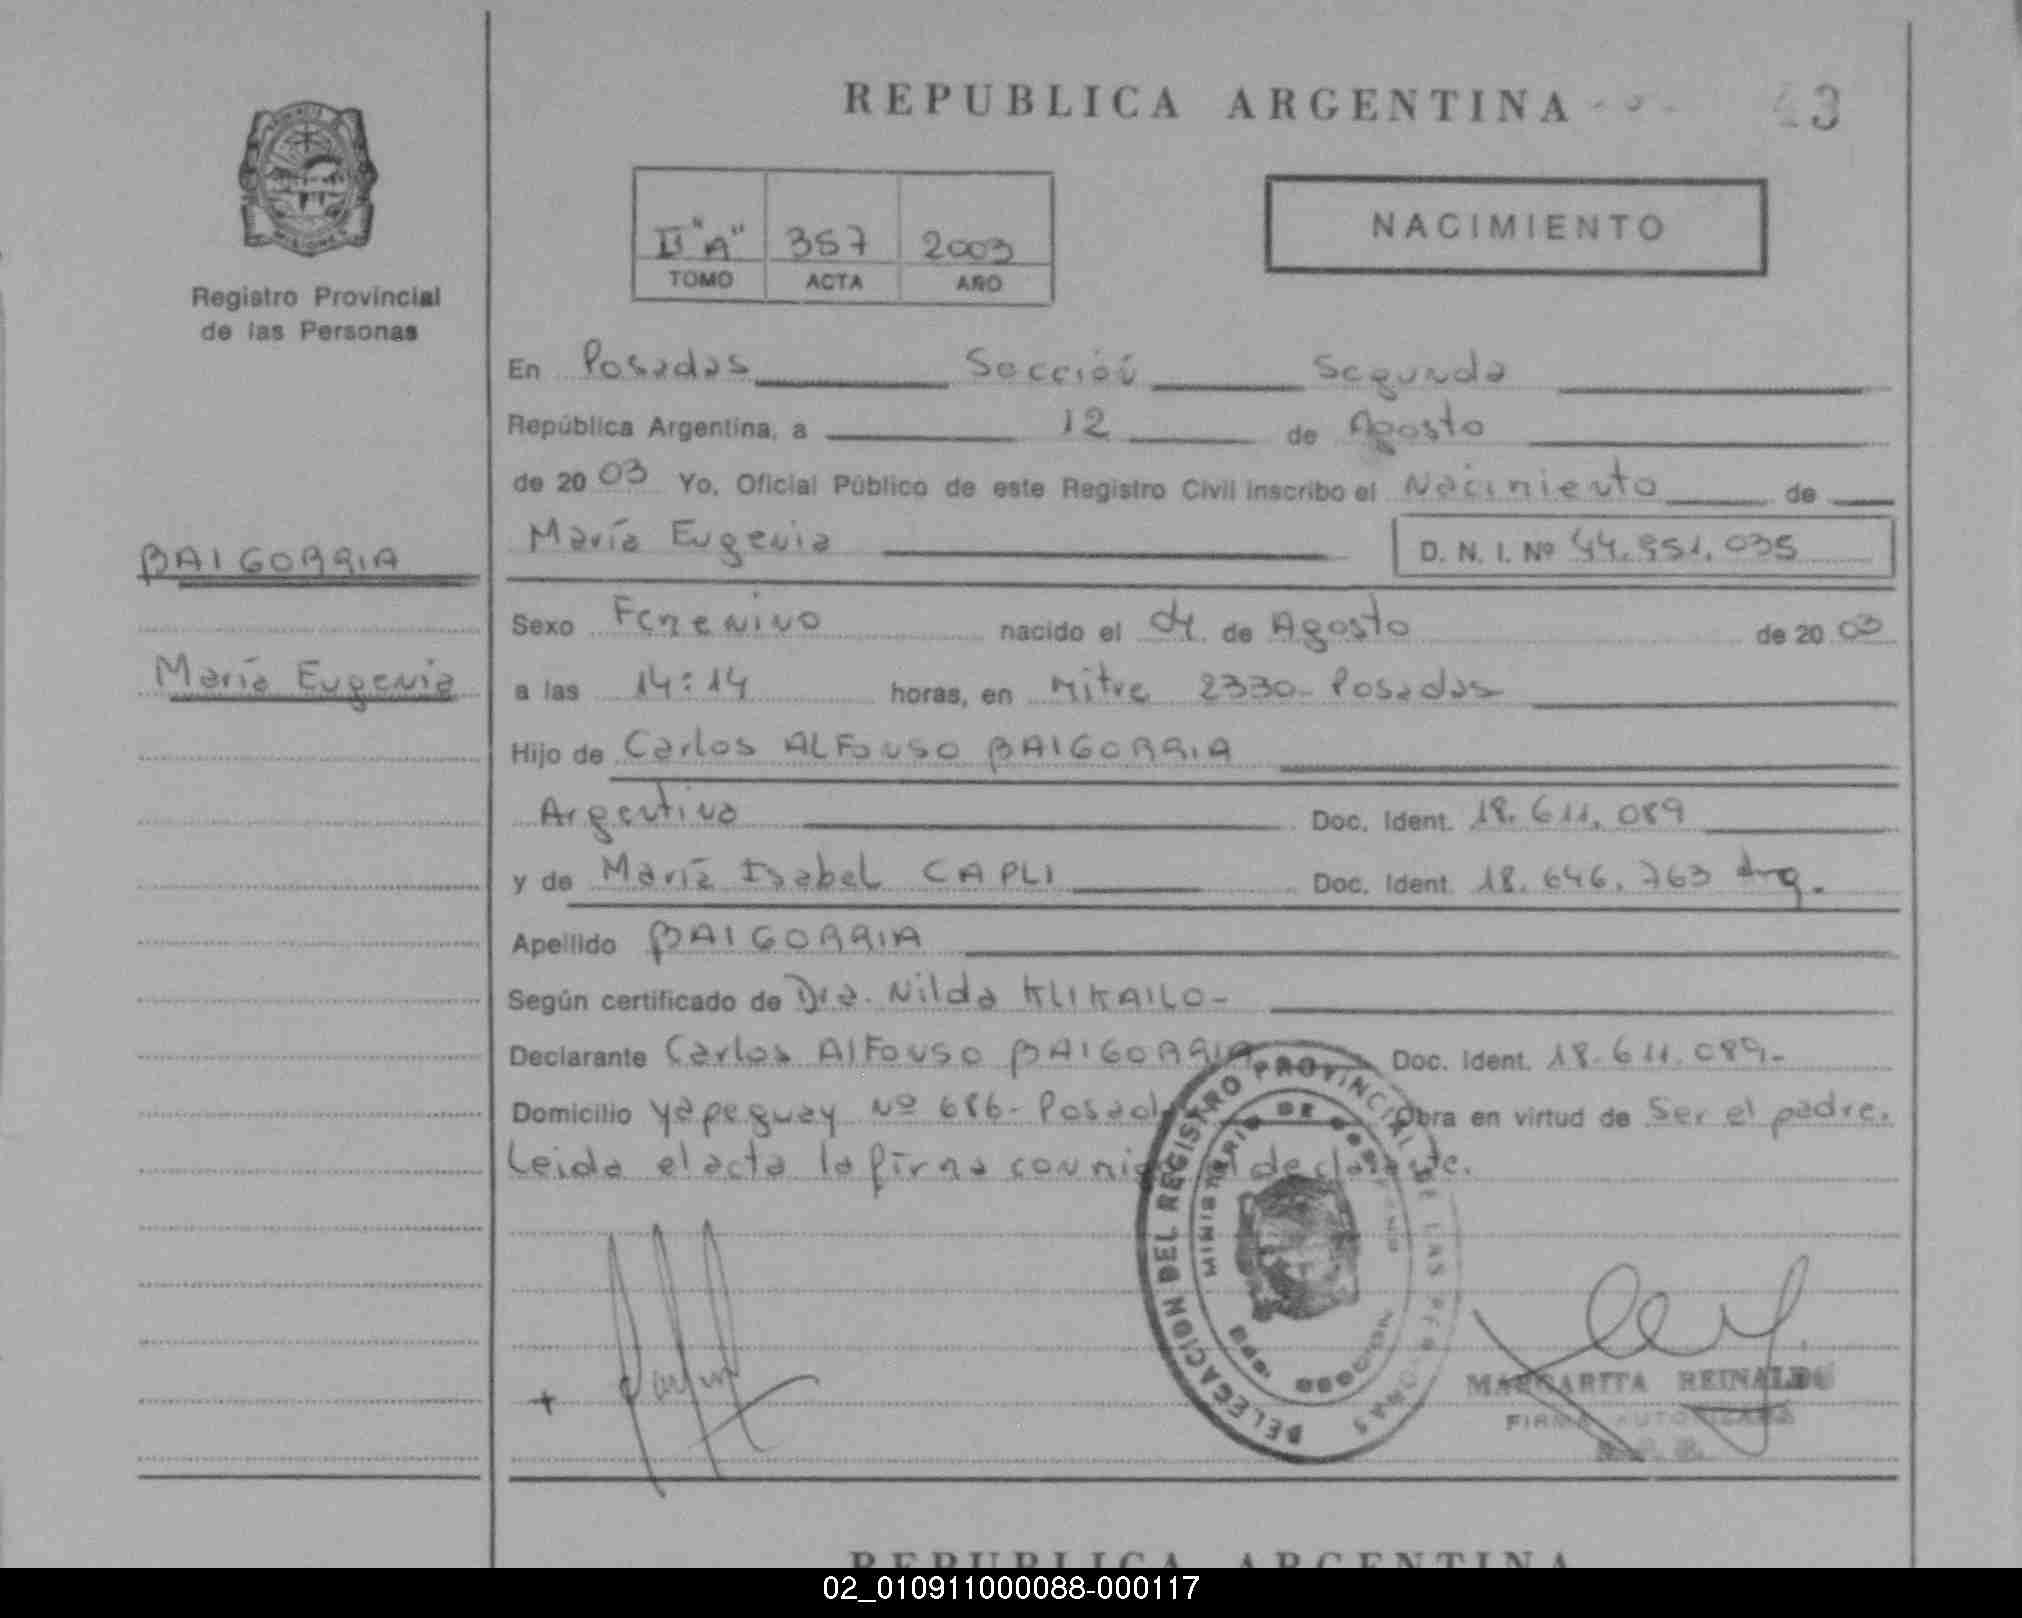 REPUBLICA ARGENTINA
43
Registro Provincial
de las Personas
II "A" 357 2003
TOMO ACTA AÑO
NACIMIENTO
En Posadas Sección Segunda
República Argentina, a 12 de Agosto
de 20 03 Yo, Oficial Público de este Registro Civil inscribo el Nacimiento de
BAIGORRIA
María Eugenia
María Eugenia D. N. I. Nº 44.951.035
Sexo Femenino nacido el 04 de Agosto de 20 03
a las 14:14 horas, en Mitre 2330- Posadas
Hijo de Carlos ALFonso BAIGORRIA
Argentino Doc. Ident. 18.611.089
y de María Isabel CAPLI Doc. Ident. 18.646.763 Arg.
Apellido BAIGORRIA
Según certificado de Dra. Nilda KLIKAILO-
Declarante Carlos AlFonso BAIGORRIA Doc. Ident. 18.611.089-
Domicilio Yapeguay Nº 686- Posadas Obra en virtud de Ser el padre.
Leida el acta la firma conmigo el declarante.
DELEGACION DEL REGISTRO PROVINCIAL DE LAS PERSONAS
MINISTERIO DE GOBIERNO
MARGARITA REINALDO
FIRMA AUTORIZADA
REPUBLICA ARGENTINA
02_010911000088-000117